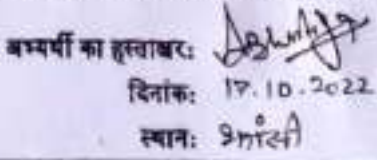 अभ्यर्थी का हस्ताक्षरः
दिनांकः 17.10.2022
स्थानः झाँसी